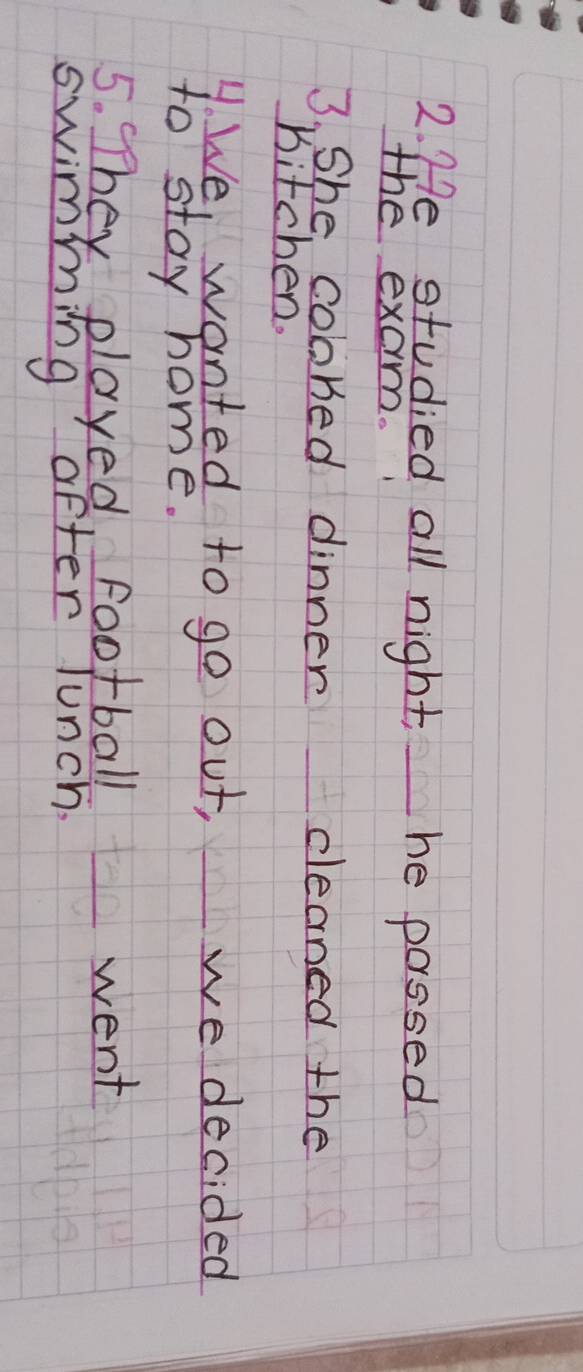 2. He studied all night, __ he passed
the exam.
3. She cooked dinner __ cleaned the
kitchen.
4. We wanted to go out, __ we decided
to stay home.
5. They played football __ went
swimming after lunch.